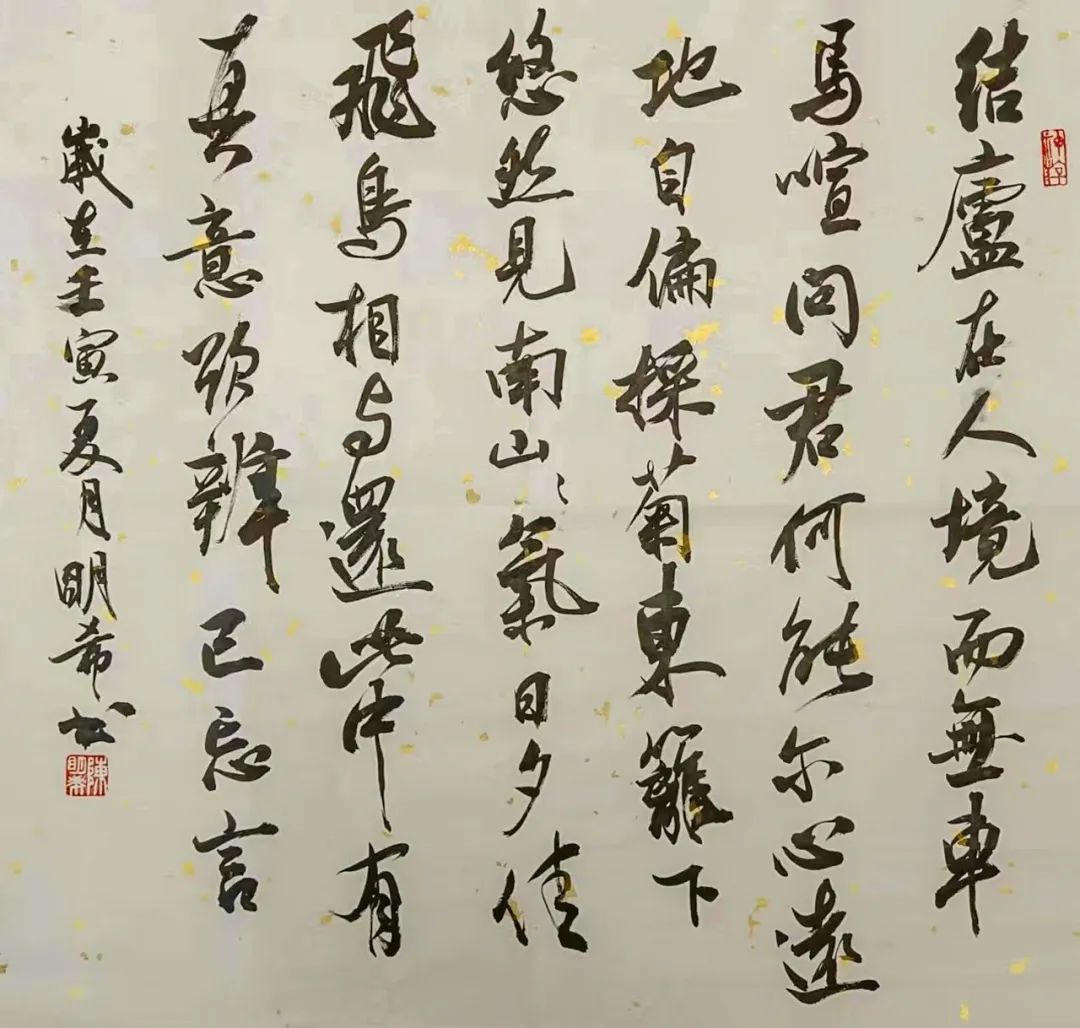 结廬在人境而無車
馬喧问君何能尔心遠
地自偏採菊東籬下
悠然見南山〻氣日夕佳
飛鳥相与還此中有
真意欲辨已忘言
歲在壬寅夏月明希书
陳明希